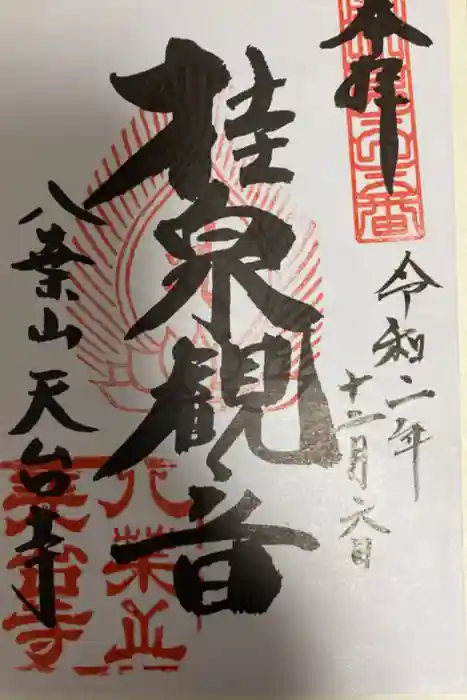 奉拝
令和二年
十二月六日
桂泉観音
八葉山天台寺
八葉山
天台寺